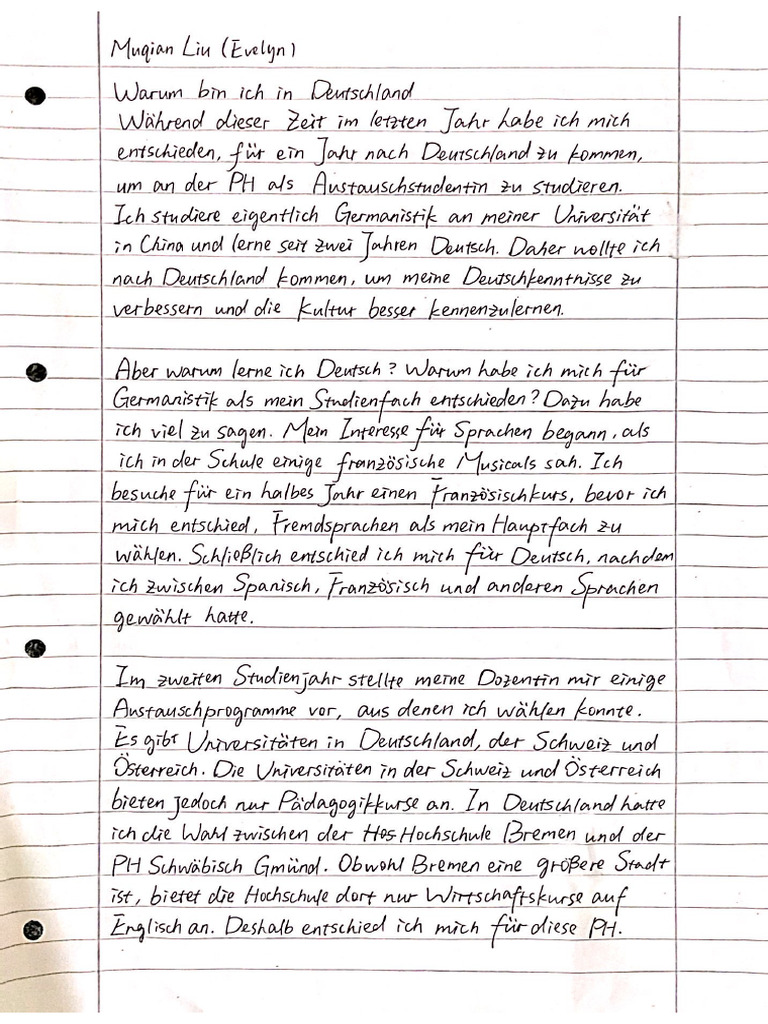 Muqian Liu (Evelyn)
Warum bin ich in Deutschland
Während dieser Zeit im letzten Jahr habe ich mich
entschieden, für ein Jahr nach Deutschland zu kommen,
um an der PH als Austauschstudentin zu studieren.
Ich studiere eigentlich Germanistik an meiner Universität
in China und lerne seit zwei Jahren Deutsch. Daher wollte ich
nach Deutschland kommen, um meine Deutschkenntnisse zu
verbessern und die Kultur besser kennenzulernen.
Aber warum lerne ich Deutsch? Warum habe ich mich für
Germanistik als mein Studienfach entschieden? Dazu habe
ich viel zu sagen. Mein Interesse für Sprachen begann, als
ich in der Schule einige französische Musicals sah. Ich
besuche für ein halbes Jahr einen Französischkurs, bevor ich
mich entschied, Fremdsprachen als mein Hauptfach zu
wählen. Schließlich entschied ich mich für Deutsch, nachdem
ich zwischen Spanisch, Französisch und anderen Sprachen
gewählt hatte.
Im zweiten Studienjahr stellte meine Dozentin mir einige
Austauschprogramme vor, aus denen ich wählen konnte.
Es gibt Universitäten in Deutschland, der Schweiz und
Österreich. Die Universitäten in der Schweiz und Österreich
bieten jedoch nur Pädagogikkurse an. In Deutschland hatte
ich die Wahl zwischen der Hos Hochschule Bremen und der
PH Schwäbisch Gmünd. Obwohl Bremen eine größere Stadt
ist, bietet die Hochschule dort nur Wirtschaftskurse auf
Englisch an. Deshalb entschied ich mich für diese PH.